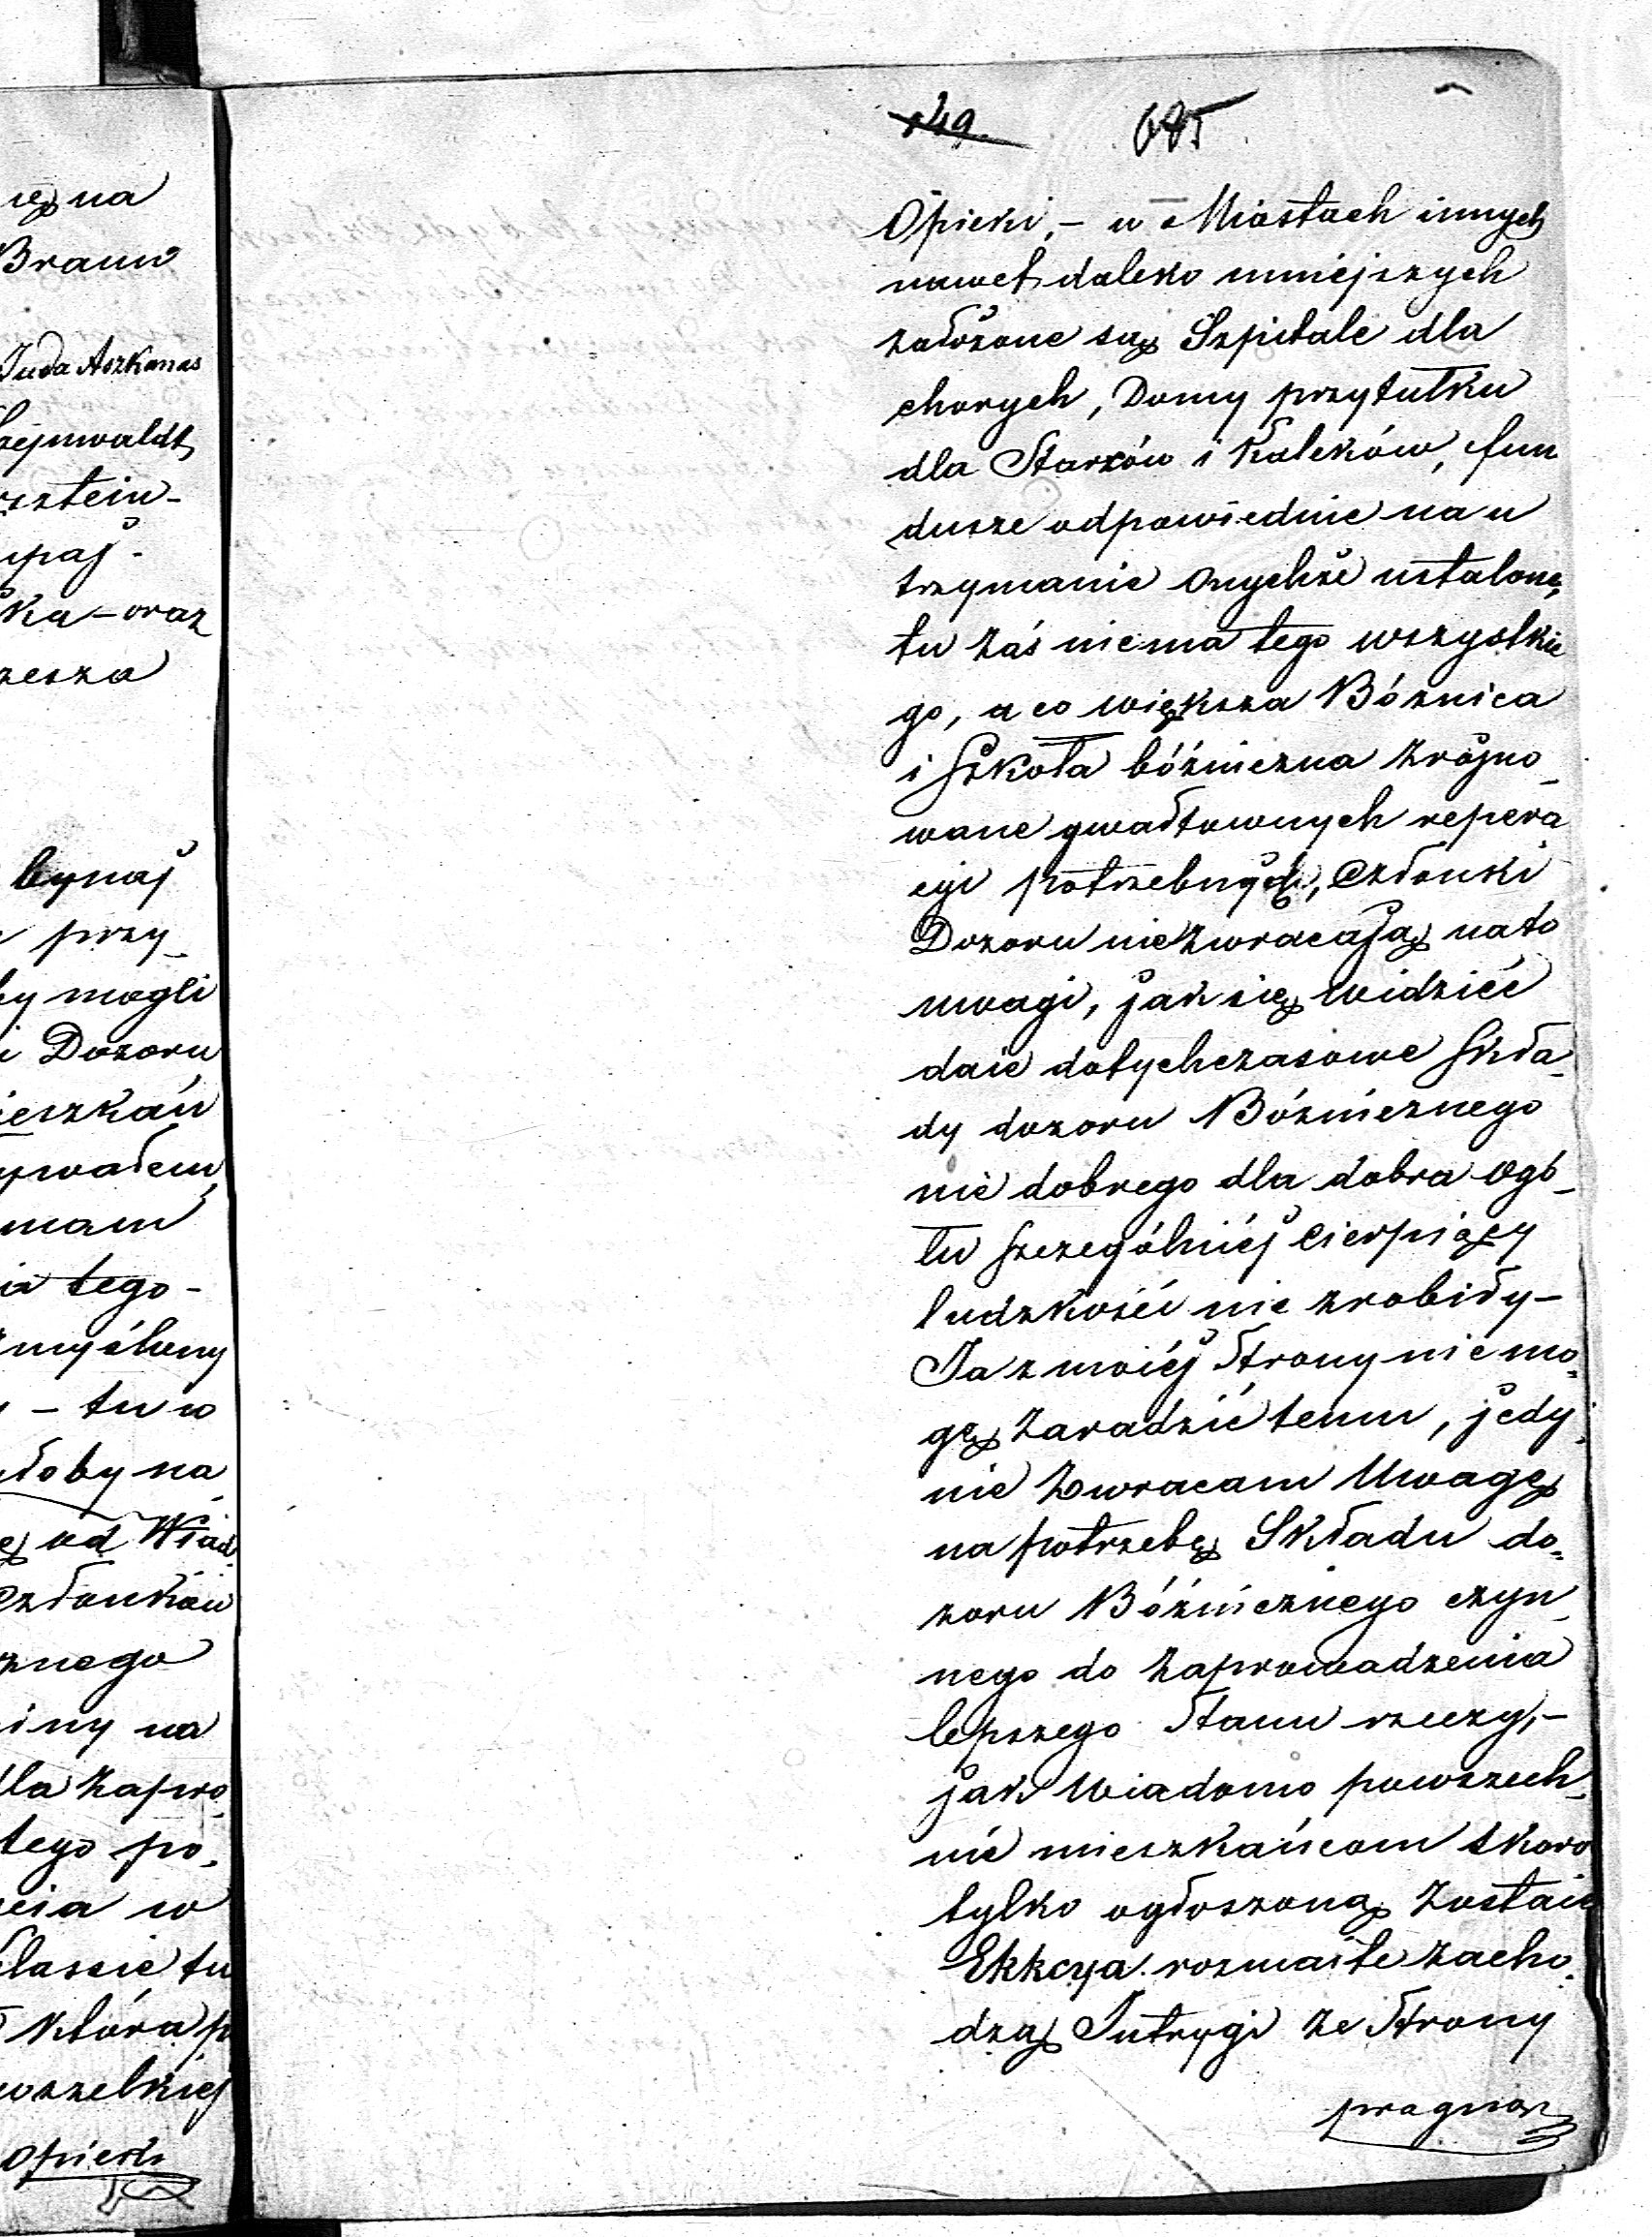 ię na
Braun
Juda Aszkanas
Lejnwaldt
rsztein-
upaj-
ka - oraz
zesza
bynaj
przy_
by mogli
i Dozoru
ieszkań
ywałem,
mam
ia tego-
zmyślony
- tu w
łoby na
ę od Wład
członków
znego
iny na
dla zapro
tego po„
cia w
classie tu
która p
wszelkiej
opieki
149 685
Opieki, - w Miastach innych
nawet daleko mniejszych
założone są Szpitale dla
chorych, Domy przytułku
dla Starców i Kaleków, fun
dusze odpowiednie na u
trzymanie onychże ustalone,
tu zaś niema tego wszystkie
go, a co większa Bóżnica
i Szkoła bóżniczna zrójno_
wane gwałtownych repera
cyi potrzebnych, członki
Dozoru niezwracają na to
uwagi, jak się widzieć
daie dotychczasowe skła_
dy dozoru Bóżnicznego
nic dobrego dla dobra ogó_
łu szczególniéj cierpiący
ludzkości nie zrobiły-
Ja z moiéj Strony nie mo„
gę zaradzić temu, jedy„
nie zwracam Uwagę
na potrzebę Składu do„
zoru Bóżnicznego czyn_
nego do zaprowadzenia
lepszego Stanu rzeczy, -
jak wiadomo powszech_
nie mieszkańcom skoro
tylko ogłoszoną zostaie
Elekcya rozmaite zacho„
dzą Intrygi ze Strony
pragnąc